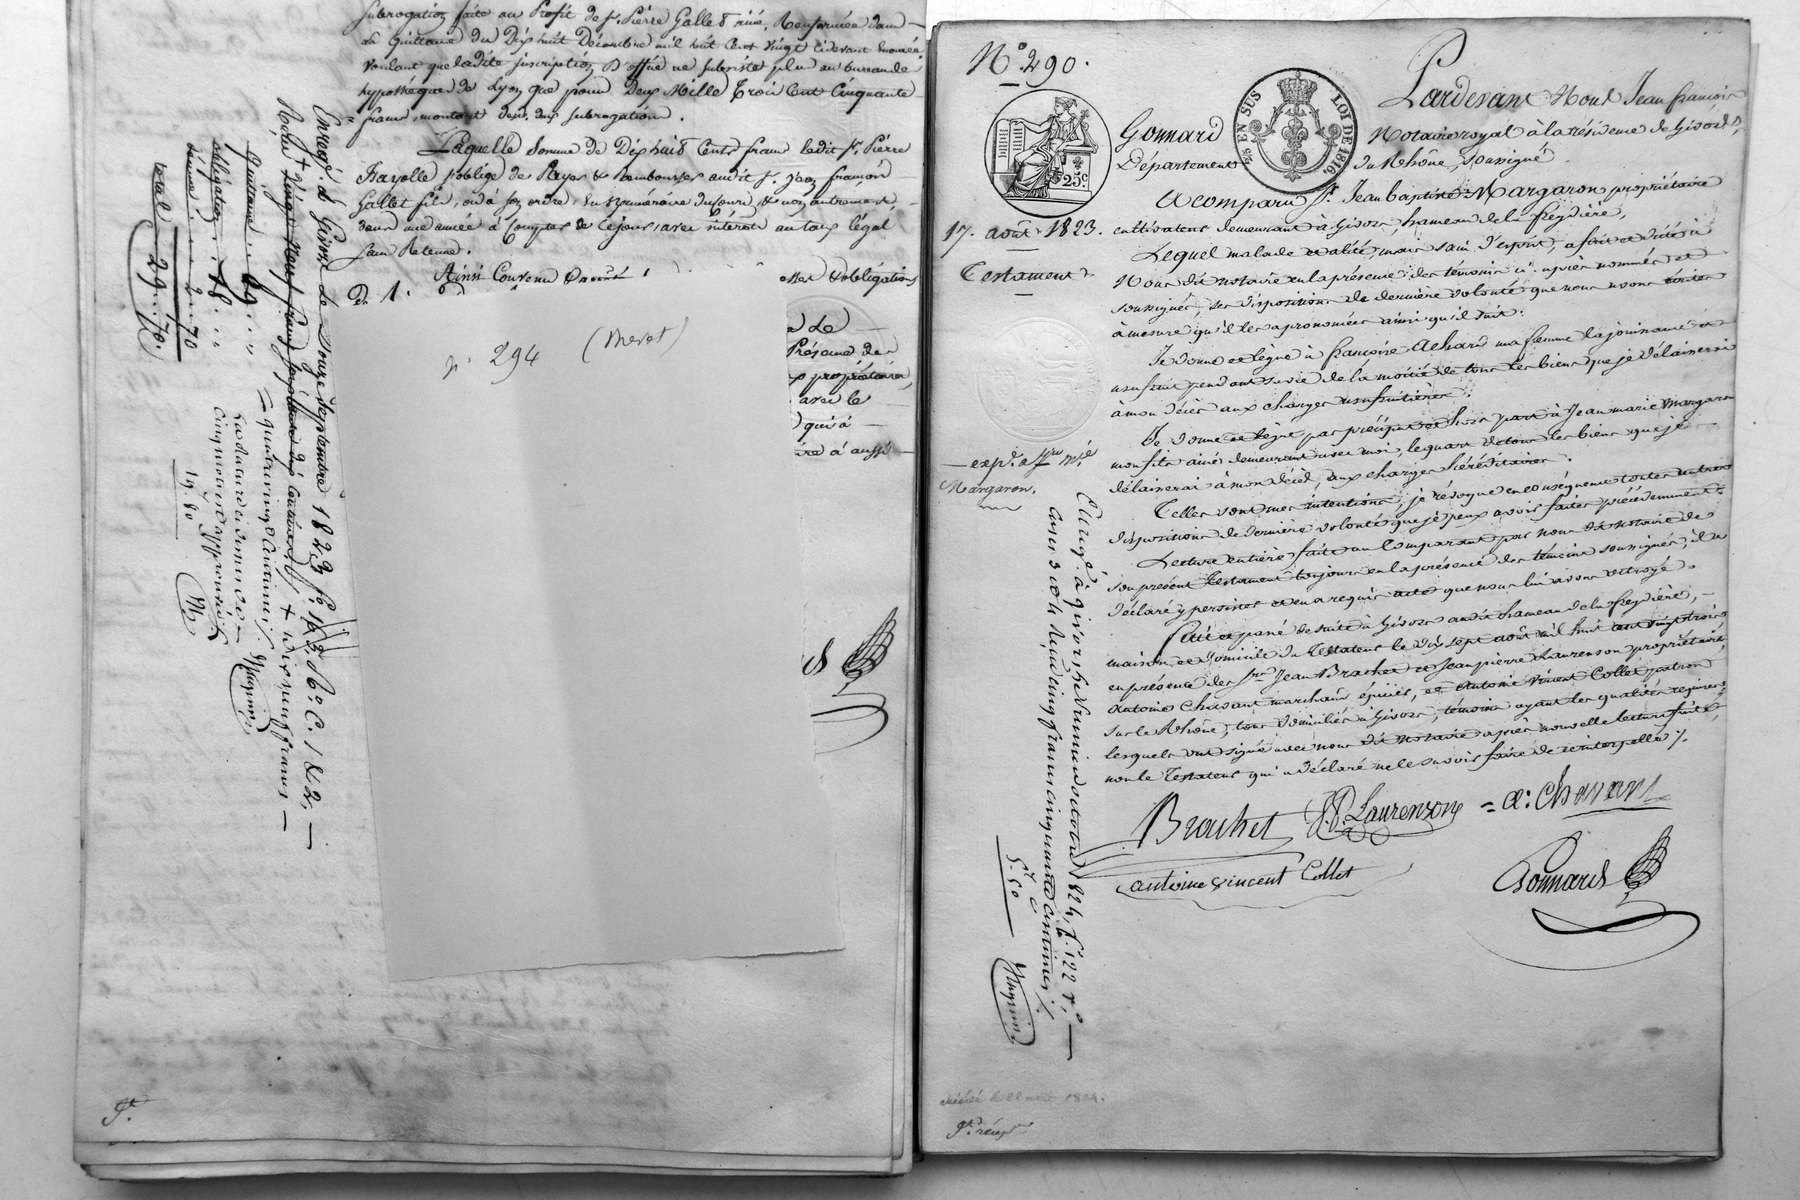 Subrogation faite au Profit de Sr. Pierre Gallet ainé, Renfermée dans
La Quittance du Dix huit Décembre mil huit Cent vingt
voulant que ladite inscription d'office ne subsiste plus au bureau des
hypothèques de Lyon que pour Deux Mille Trois Cent Cinquante
francs, montant des deux subrogations.
Laquelle Somme de Dix huit Cents francs ledit Sr. Pierre
Fayolle s'oblige de Payer & Rembourser audit Sr. Jean françois
Gallet fils, ou à son ordre, En numéraire & non autrement,
dans une année à Compter de ce jour, avec intérêts au taux légal
sans Retenue.
Ainsi Convenu
obligations
Le
Présence de
propriétaires,
avec le
qu'à
à aussi
n° 294 (Meret)
Enregé. à Givors Le Douze Septembre 1823 fo. 163 Ro. C. 1 & 2.
Reçu Vingt Neuf francs
Quittance
obligation . 18 . .
Dixme . . 2 . 70
Total . 29 . 70.
+ dix neuf francs
quatre vingt centimes
19. 80
N° 290.
25c.
TIMB EN SUS
LOI DE 1816.
17. août 1823.
Testament.
expé. à Jean Mie
Margaron.
Pardevant Nous Jean françois
Gonnard Notaire royal à la résidence de Givors,
Département du Rhône, soussigné
A comparu Sr. Jean Baptiste Margaron propriétaire
cultivateur demeurant à Givors, hameau de la freydière,
Lequel malade et alité, mais sain d'esprit, a fait et dicté à
Nous dit notaire en la présence des témoins ci-après nommés et
soussignés, ses dispositions de dernière volonté que nous avons écrites
à mesure qu'il les a prononcées ainsi qu'il suit.
Je donne et lègue à françoise Achard ma femme la jouissance et
usufruit pendant sa vie de la moitié de tous les biens que je délaisserai
à mon décès aux charges usufruitières.
Je donne et lègue par préciput et hors part à Jean marie Margaron
mon fils ainé demeurant avec moi, le quart de tous les biens que je
délaisserai à mon décès, aux charges héréditaires.
Telles sont mes intentions; je révoque en conséquence toutes autres
dispositions de dernière volonté que je peux avoir faites précédemment.
Lecture entière faite au Comparant par nous dit notaire de
son présent testament toujours en la présence des témoins soussignés, il a
déclaré y persister et en a requis acte que nous lui avons octroyé.
Fait et passé de suite à Givors audit hameau de la freydière,
maison et domicile du Testateur le dix sept août mil huit cent vingt trois
en présence des Srs. Jean Brachet et Jean pierre Laurenson propriétaires
Antoine Chavant marchand épicier, et Antoine Vincent Collet patron
sur le Rhône, tous domiciliés à Givors, témoins ayant les qualités requises
lesquels ont signé avec nous dit Notaire après nouvelle lecture faite,
non le Testateur qui a déclaré ne le savoir faire de ce interpellé.
Brachet J.P. Laurenson = A: Chavant
antoine vincent Collet
Gonnard
Enregé. à givors le Nuit octobre 1824, fo. 122 ro.
cases 3 et 4 Reçu cinq francs cinquante centimes
5. 50
décédé le 21 août 1824.